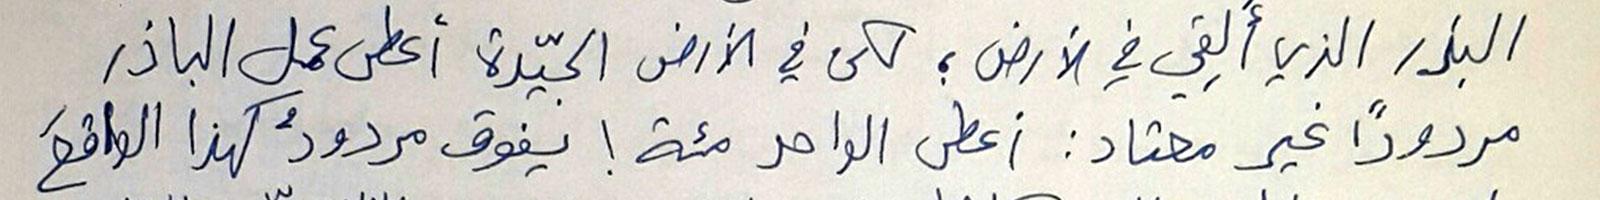 البذر الذي أُلقي في الأرض؛ لكن في الأرض الجيّدة أعطى عمل الباذر
مردودًا غير معتاد: أعطى الواحد مئة! يفوق مردودٌ كهذا الواقعَ